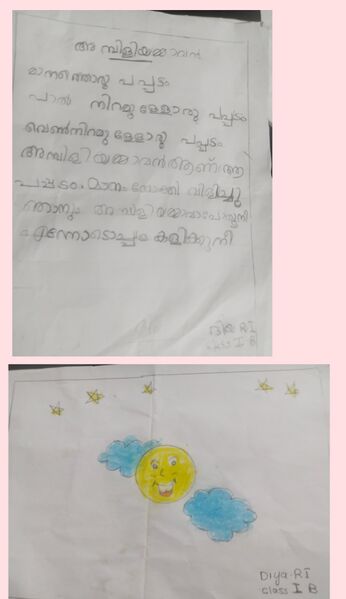 അമ്പിളിയമ്മാവൻ
മാനത്തൊരു പപ്പടം
പാൽ നിറമുള്ളോരു പപ്പടം
വെൺനിറമുള്ളോരു പപ്പടം
അമ്പിളിയമ്മാവൻ ആണ് ആ
പപ്പടം. മാനം നോക്കി വിളിച്ചു
ഞാനും അമ്പിളിയമ്മാവാ
എന്നോടൊപ്പം കളിക്കുന്നീ
ദിയ. R I
class I B
Diya. R I
class I B